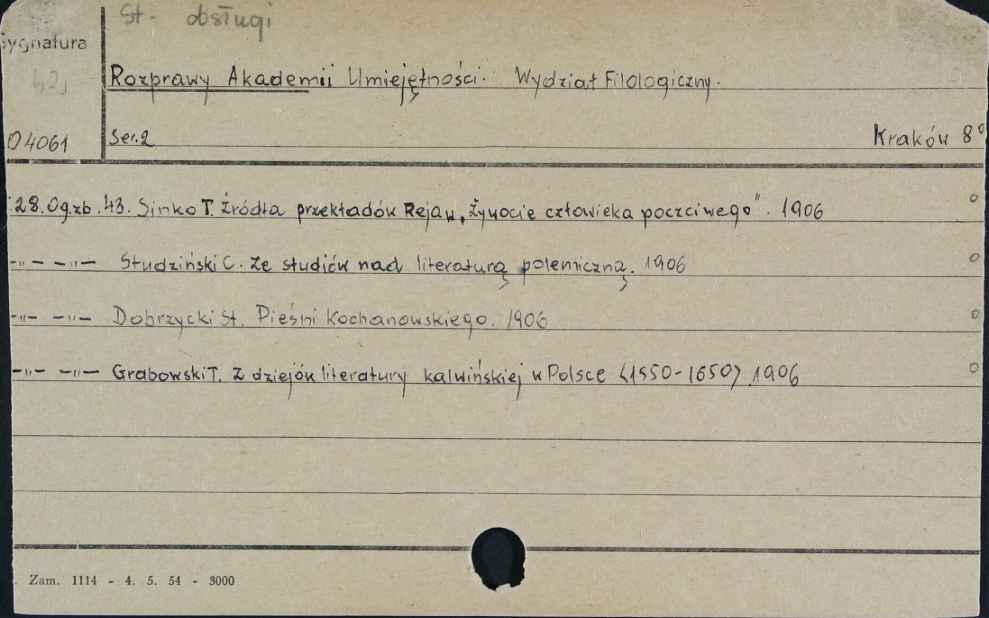 St. obsługi
Sygnatura
Rozprawy Akademii Umiejętności. Wydział Filologiczny.
O4061 Ser.2 Kraków 8°
28. Og.zb. 43. Sinko T. Źródła przekładów Reja w „Żywocie człowieka poczciwego”. 1906 o
-"- -"- Studziński C. Ze studiów nad literaturą polemiczną. 1906 o
-"- -"- Dobrzycki St. Pieśni Kochanowskiego. 1906 o
-"- -"- Grabowski T. Z dziejów literatury kalwińskiej w Polsce (1550-1650) 1906 o
Zam. 1114 - 4. 5. 54 - 3000